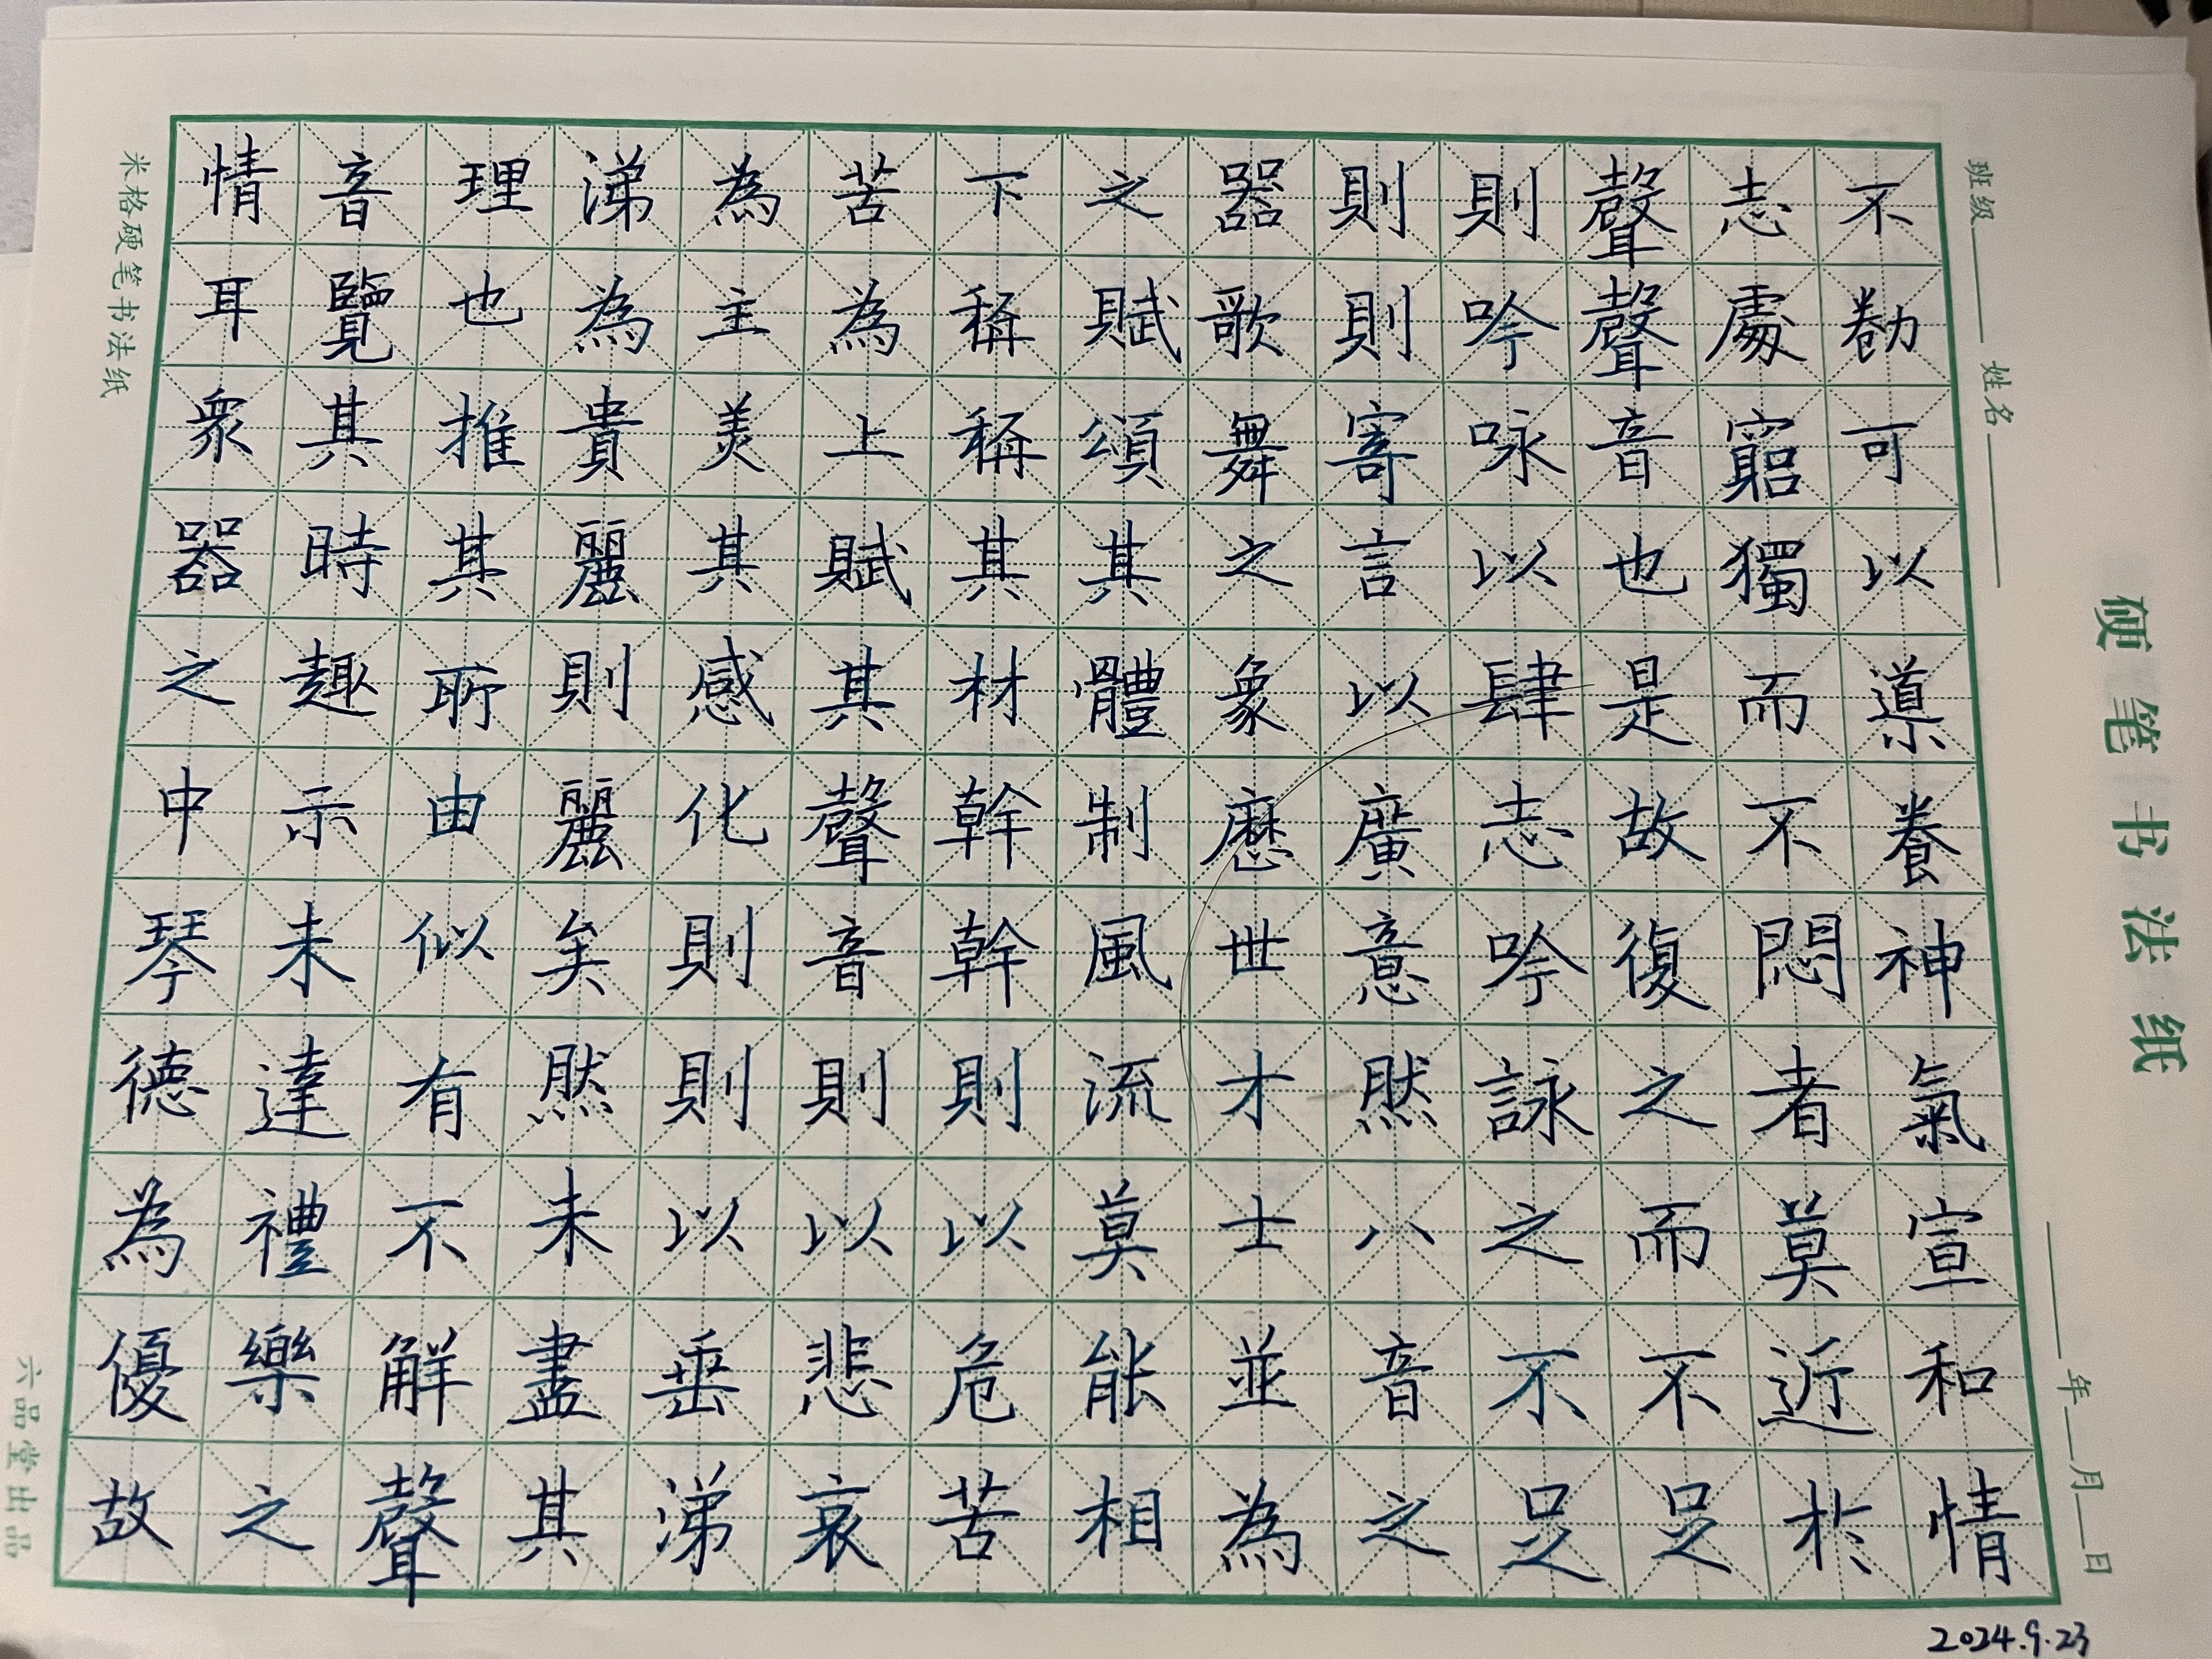 不勌可以導養神氣宣和情
志處窮獨而不悶者莫近於
聲聲音也是故復之而不足
則吟詠以肆志吟詠之不足
則則寄言以廣意然八音之
器歌舞之象歷世才士並為
之賦頌其體制風流莫能相
下稱稱其材幹幹則以危苦
苦為上賦其聲音則以悲哀
為主美其感化則則以垂涕
涕為貴麗則麗矣然未盡其
理也推其所由似有不解聲
音覽其時趣亦未達禮樂之
情耳眾器之中琴德為優故
2024.9.23
硬笔书法纸
班级 姓名 年 月 日
米格硬笔书法纸
六品堂出品